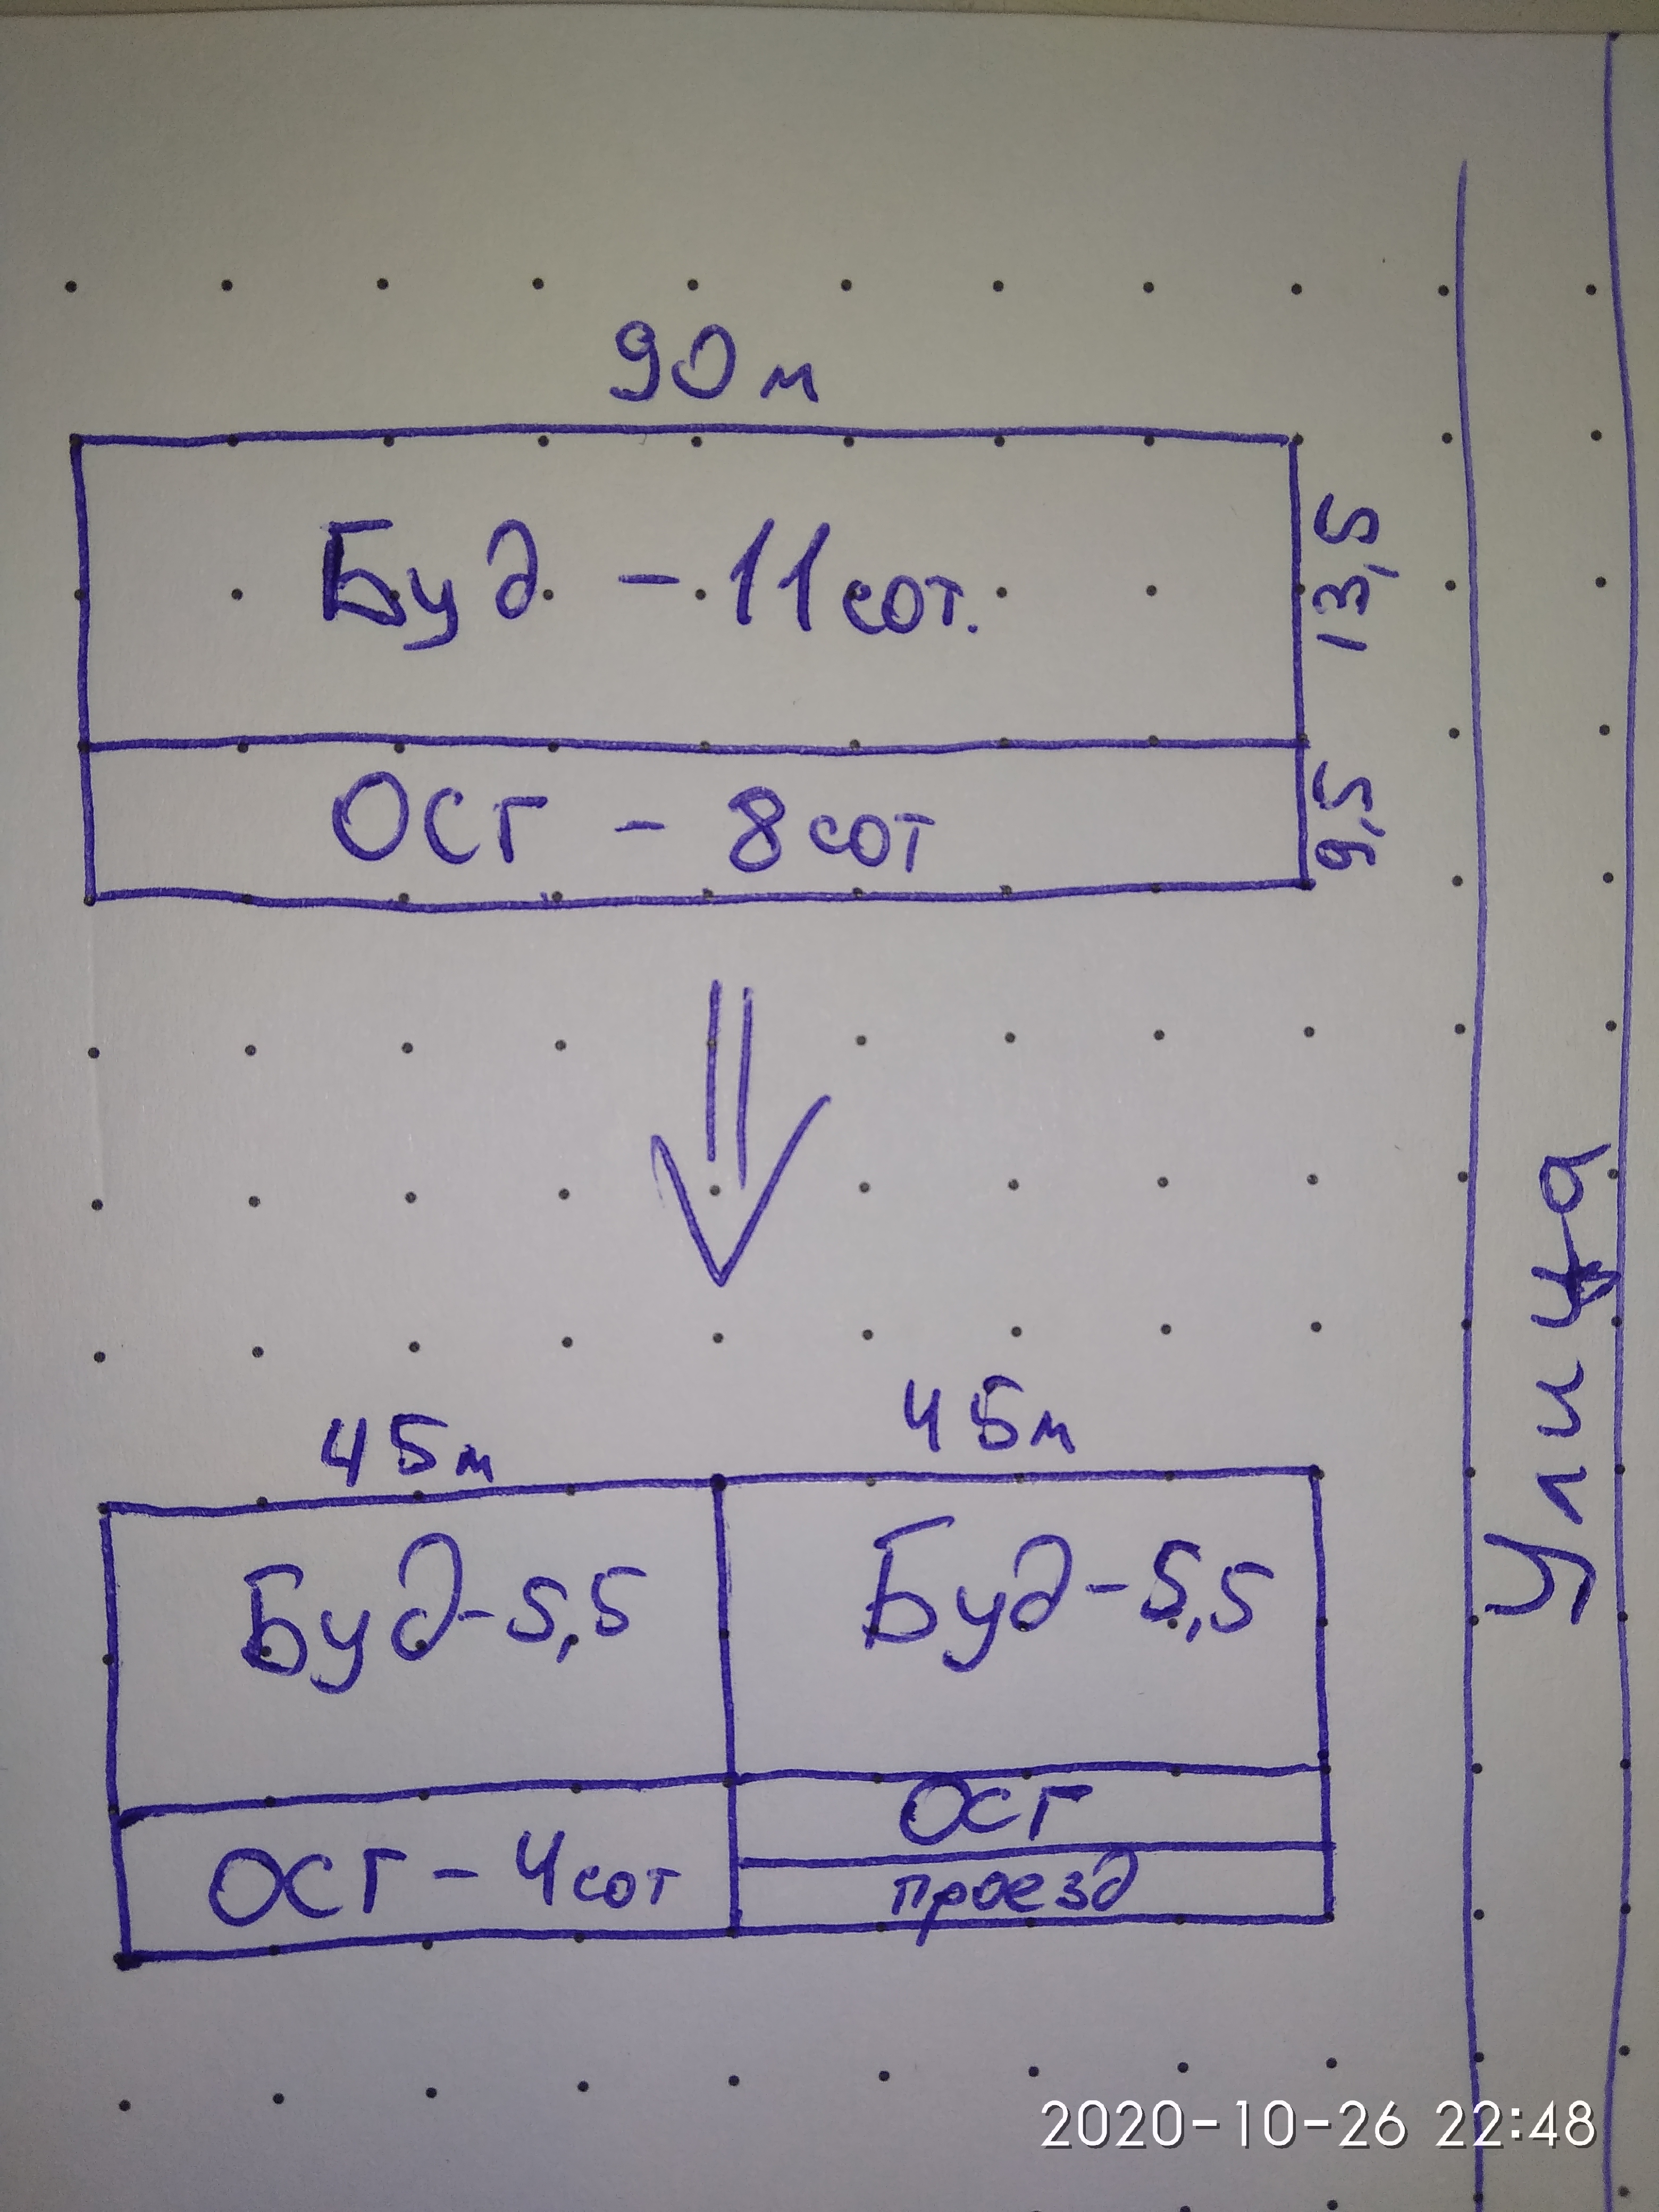 90м
Буд - 11 сот.
13,5
ОСГ - 8 сот
9,5
Улица
45м
45м
Буд-5,5
Буд-5,5
ОСГ
ОСГ - 4 сот
проезд
2020-10-26 22:48